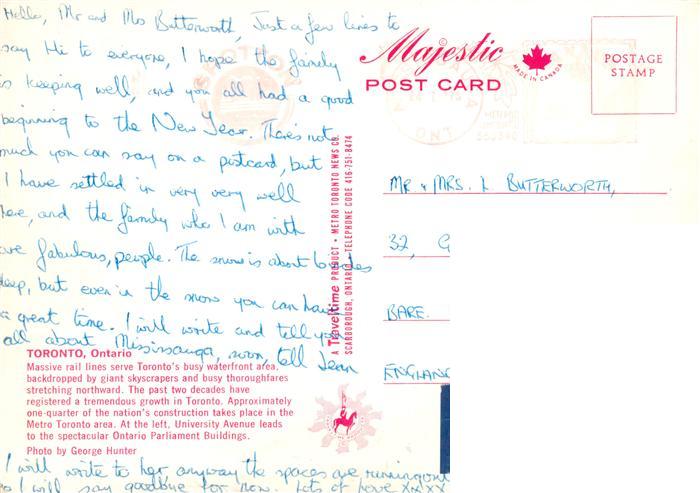 Hello, Mr and Mrs Butterworth, Just a few lines to
say Hi to everyone, I hope the family
is keeping well, and you all had a good
beginning to the New Year. There's not
much you can say on a postcard, but
I have settled in very very well
here, and the family who I am with
are fabulous, people. The snow is about 6 inches
deep, but even in the snow you can have
a great time. I will write and tell you
all about Mississauga, soon, tell Jean
I will write to her anyway the spaces are running out
so I will say goodbye for now. Lots of love xxxxx
TORONTO, Ontario
Massive rail lines serve Toronto's busy waterfront area,
backdropped by giant skyscrapers and busy thoroughfares
stretching northward. The past two decades have
registered a tremendous growth in Toronto. Approximately
one-quarter of the nation's construction takes place in the
Metro Toronto area. At the left, University Avenue leads
to the spectacular Ontario Parliament Buildings.
Photo by George Hunter
A Traveltime PRODUCT • METRO TORONTO NEWS CO.
SCARBOROUGH, ONTARIO • TELEPHONE CODE 416-751-8474
Majestic
POST CARD
MADE IN CANADA
POSTAGE
STAMP
ONT
MR & MRS. L BUTTERWORTH,
32, G
BARE.
ENGLAND